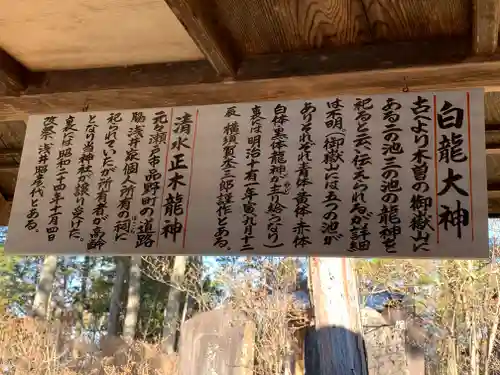 白龍大神
古くより木曽の御嶽山に
ある二の池三の池の龍神を
祀ると云い伝えられるが詳細
は不明。御嶽山には五つの池が
ありそれぞれ青体 黄体 赤体
白体 黒体龍神の主り給うなり
裏には明治十一年寅九月十二
辰 横須賀矢三郎謹作とある。
清水正木龍神
元々瀬戸市品野町の道路
脇浅井家個人所有の祠に
祀られていたが所有者が高齢
となり当神社が譲り受けた。
裏には昭和二十四年十月四日
改祭 浅井昭彦代とある。